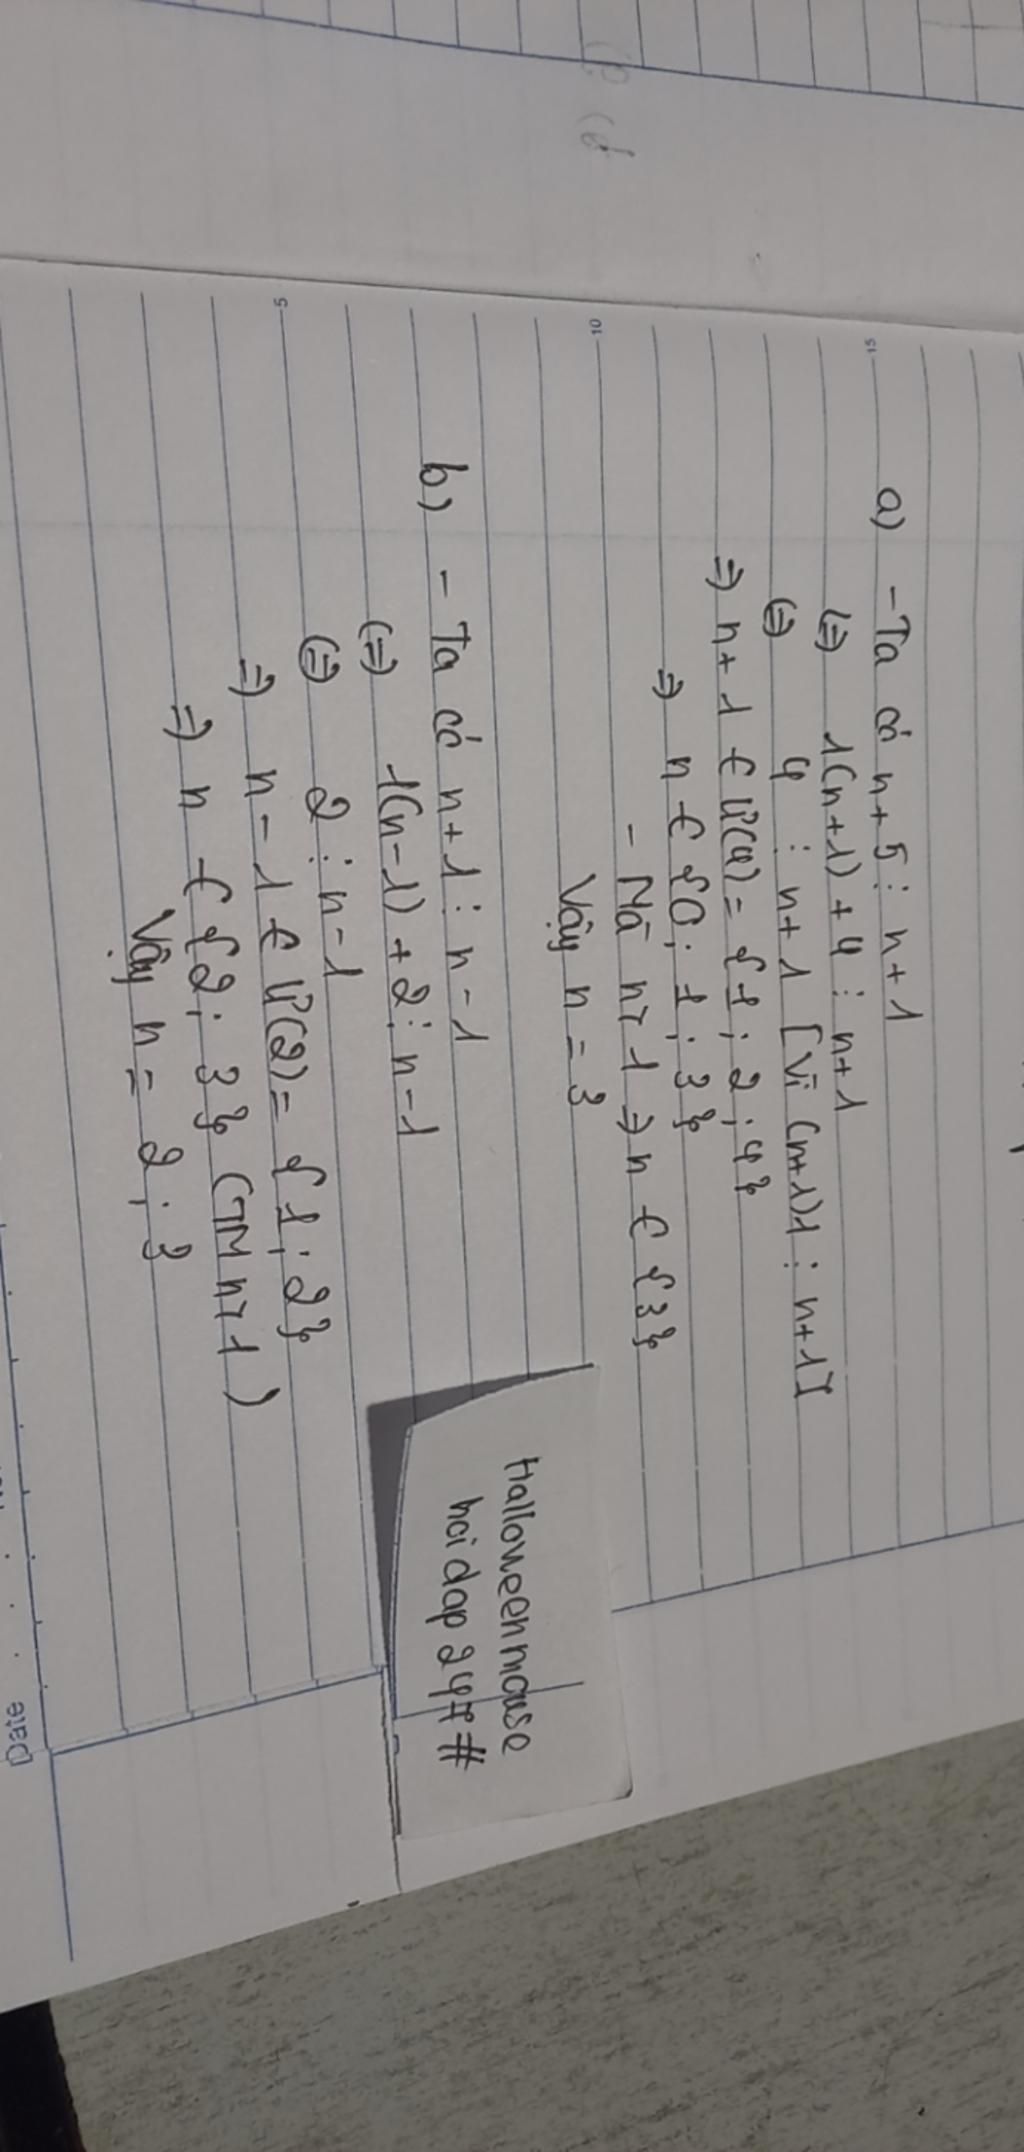 a) - Ta có n+5 ⋮ n+1
(=) 1(n+1) + 4 ⋮ n+1
(=) 4 ⋮ n+1 [Vì (n+1)1 ⋮ n+1]
=) n+1 € Ư(4) = {1; 2; 4}
=) n € {0; 1; 3}
- Mà n>1 =) n € {3}
Vậy n = 3
b) - Ta có n+1 ⋮ n-1
(=) 1(n-1) + 2 ⋮ n-1
(=) 2 ⋮ n-1
=) n-1 € Ư(2) = {1; 2}
=) n € {2; 3} (TM n>1)
Vậy n = 2; 3
Halloweenmouse
hoidap247#
15
10
5
Date